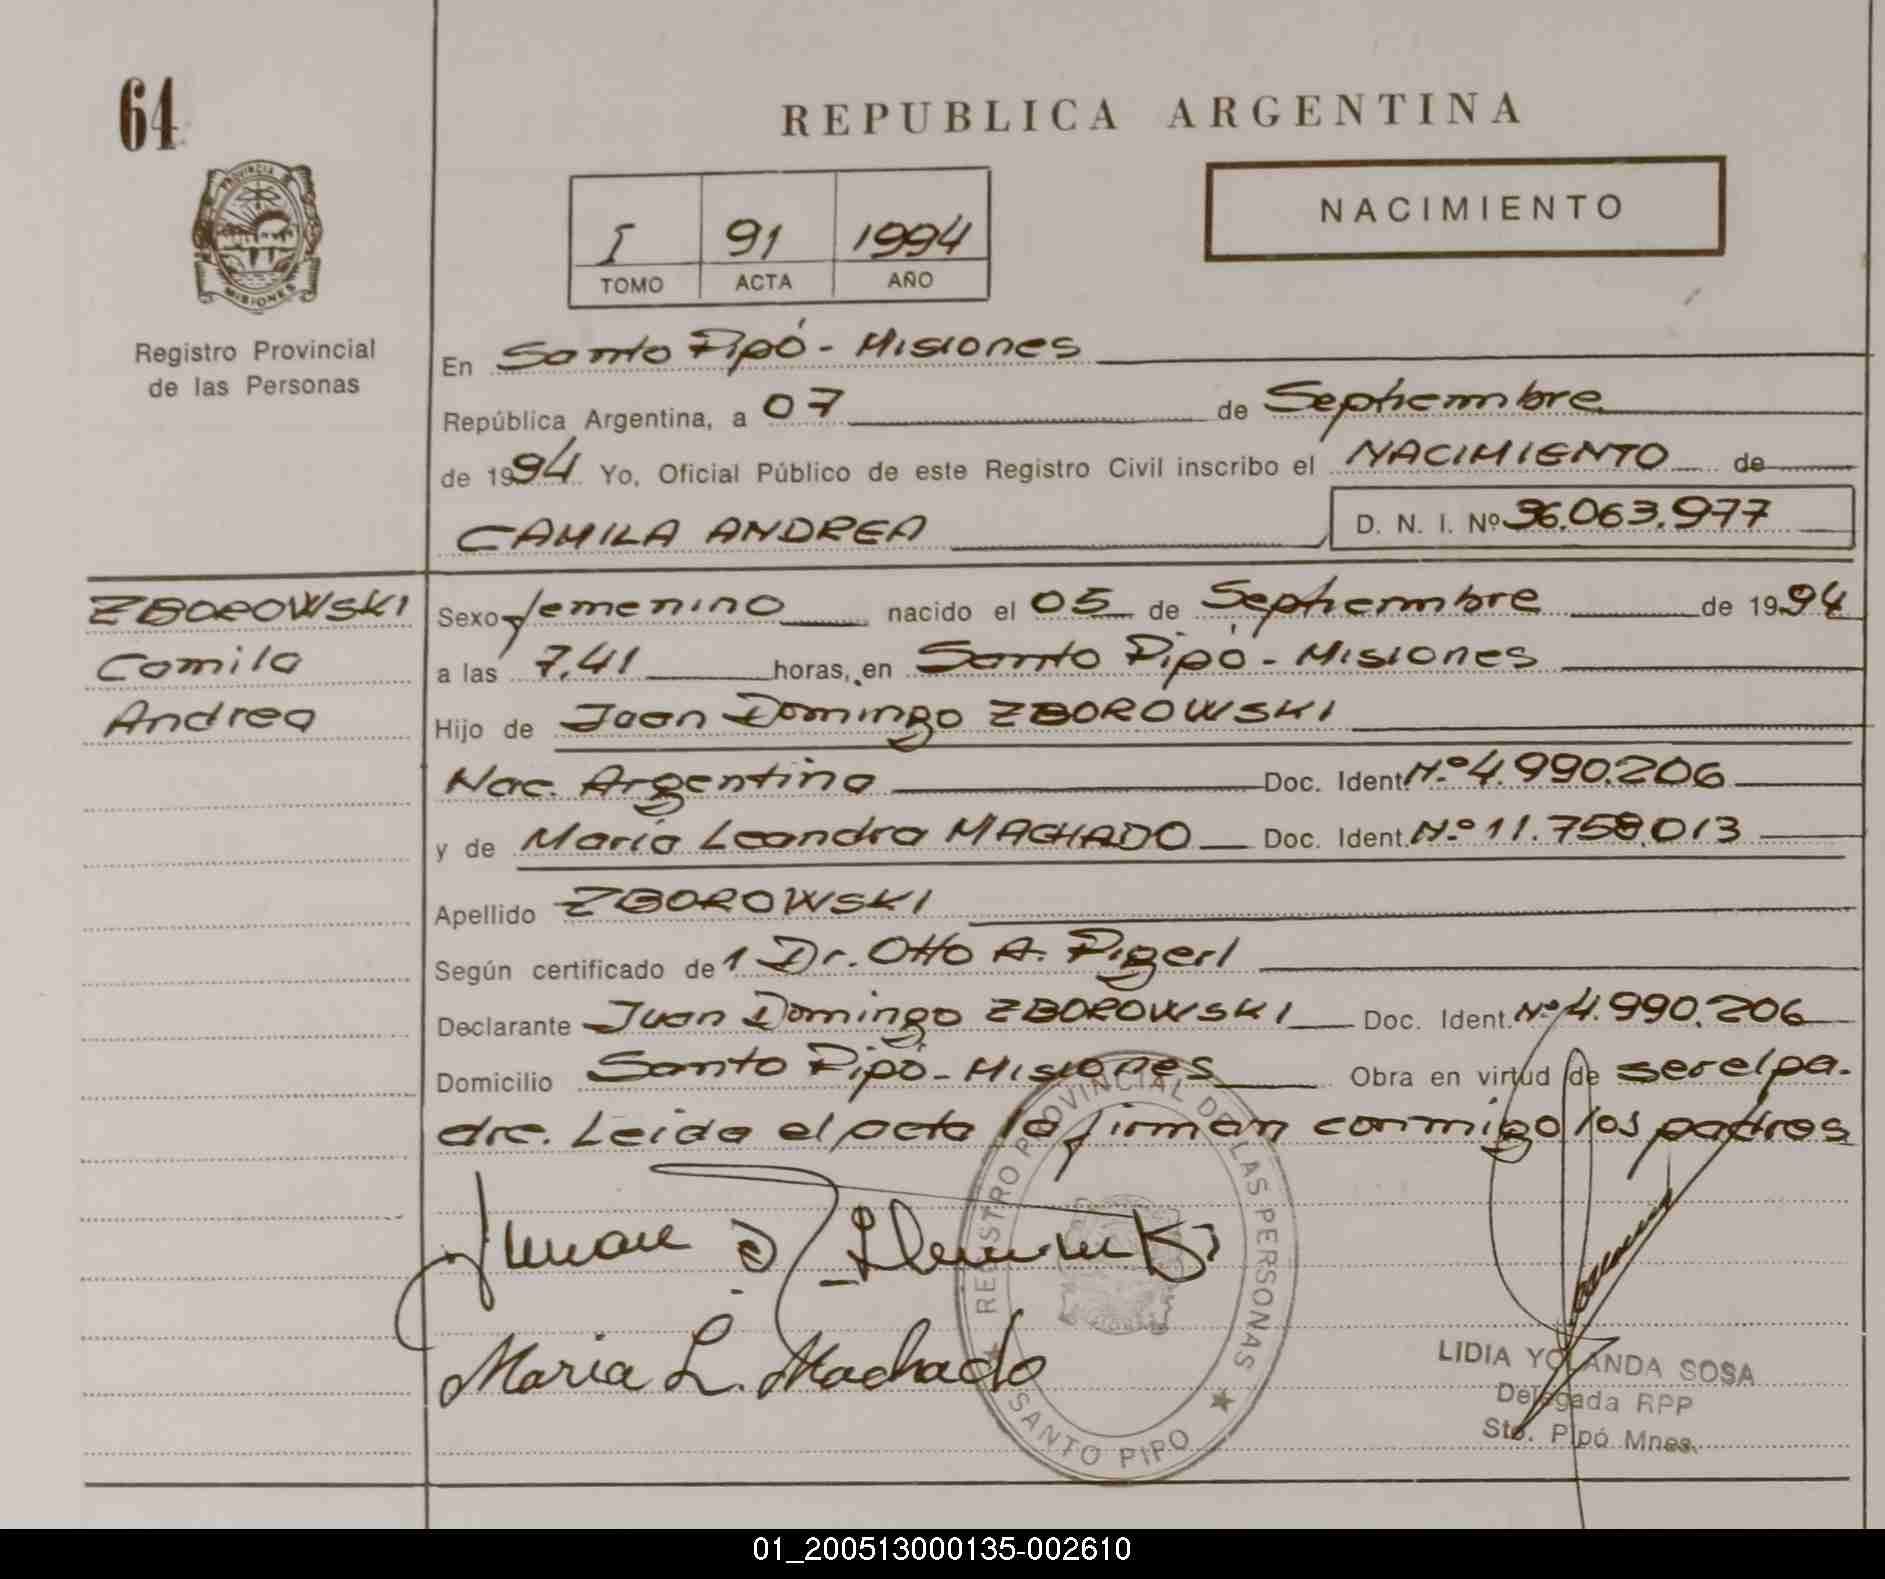 64
REPUBLICA ARGENTINA
PROVINCIA DE
MISIONES
Registro Provincial
de las Personas
I 91 1994
TOMO ACTA AÑO
NACIMIENTO
En Santo Pipó - Misiones
República Argentina, a 07 de Septiembre
de 1994 Yo, Oficial Público de este Registro Civil inscribo el NACIMIENTO de
CAMILA ANDREA D. N. I. Nº 36.063.977
ZBOROWSKI
Camila
Andrea
Sexo femenino nacido el 05 de Septiembre de 1994
a las 7,41 horas, en Santo Pipó - Misiones
Hijo de Juan Domingo ZBOROWSKI
Nac. Argentina Doc. Ident. N.º 4.990.206
y de María Leandra MACHADO Doc. Ident. N.º 11.758.013
Apellido ZBOROWSKI
Según certificado de 1 Dr. Otto A. Pigerl
Declarante Juan Domingo ZBOROWSKI Doc. Ident. Nº 4.990.206
Domicilio Santo Pipó - Misiones Obra en virtud de ser el pa-
dre. Leida el acta la firman conmigo los padres
Juan D.
Maria L. Machado
REGISTRO PROVINCIAL DE LAS PERSONAS
SANTO PIPO
LIDIA YOLANDA SOSA
Delegada RPP
Sto. Pipó Mnes.
01_200513000135-002610